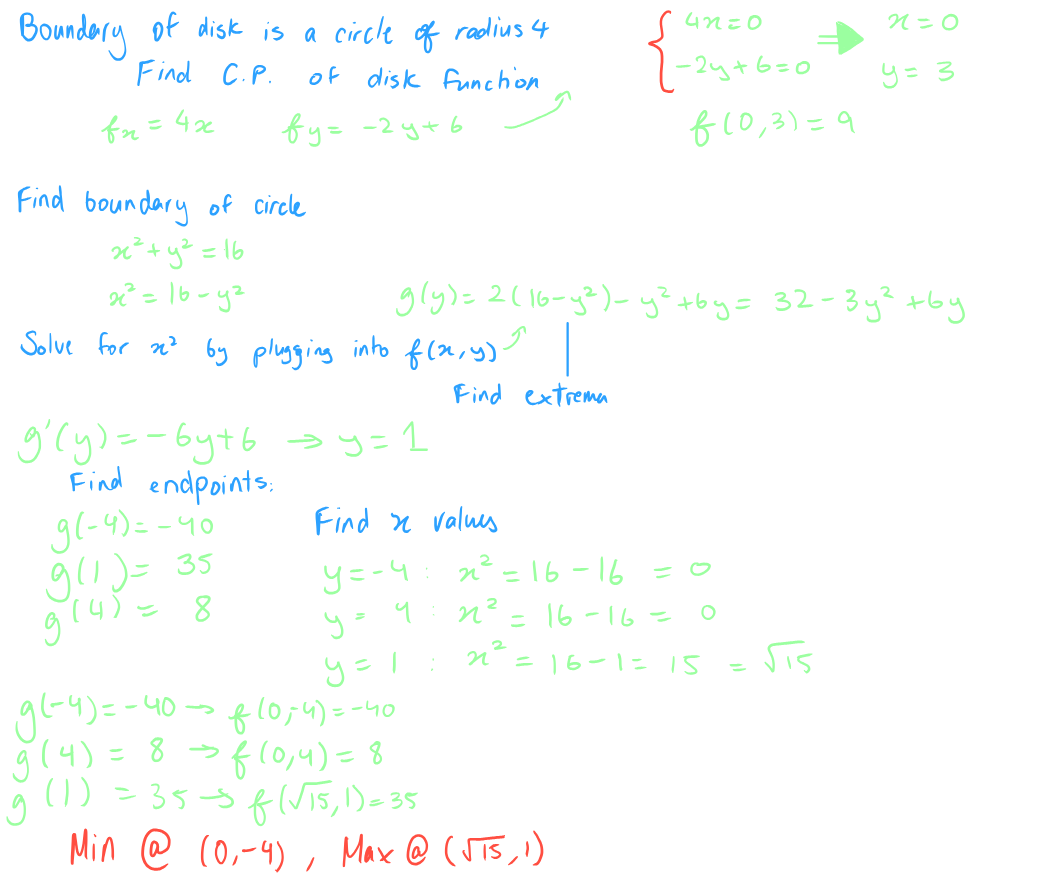 Boundary of disk is a circle of radius 4
Find C.P. of disk function
fx = 4x fy = -2y+6
{ 4x=0 ⇒ x=0
-2y+6=0 y=3
f(0,3)=9
Find boundary of circle
x²+y²=16
x²=16-y²
g(y)=2(16-y²)-y²+6y=32-3y²+6y
Solve for x² by plugging into f(x,y)
Find extrema
g'(y)=-6y+6 → y=1
Find endpoints:
g(-4)=-40
g(1)=35
g(4)=8
Find x values
y=-4: x²=16-16=0
y=4: x²=16-16=0
y=1: x²=16-1=15=√15
g(-4)=-40 → f(0,-4)=-40
g(4)=8 → f(0,4)=8
g(1)=35 → f(√15,1)=35
Min @ (0,-4), Max @ (√15,1)